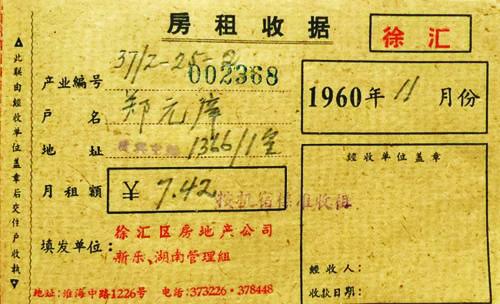 房租收据
徐汇
产业编号 37/2-25-2
002368
户名 郑元库
地址 1366/1室
月租额 ¥ 7.42
按机估标准收租
填发单位：
徐汇区房地产公司
新乐、湖南管理组
地址：淮海中路1226号 电话：373226·378448
1960年11月份
经收单位盖章
经收人：
收款日期：
▲此联由经收单位盖章后交住户收执▼